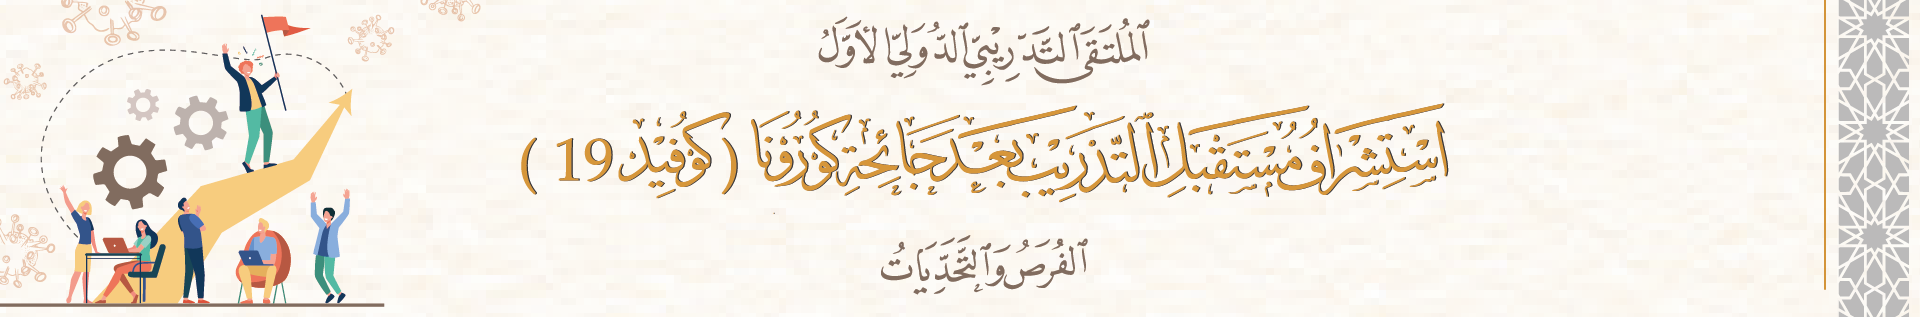 الملتقى التدريبي الدولي الأول
استشراف مستقبل التدريب بعد جائحة كورونا ( كوفيد 19 )
الفرص والتحديات